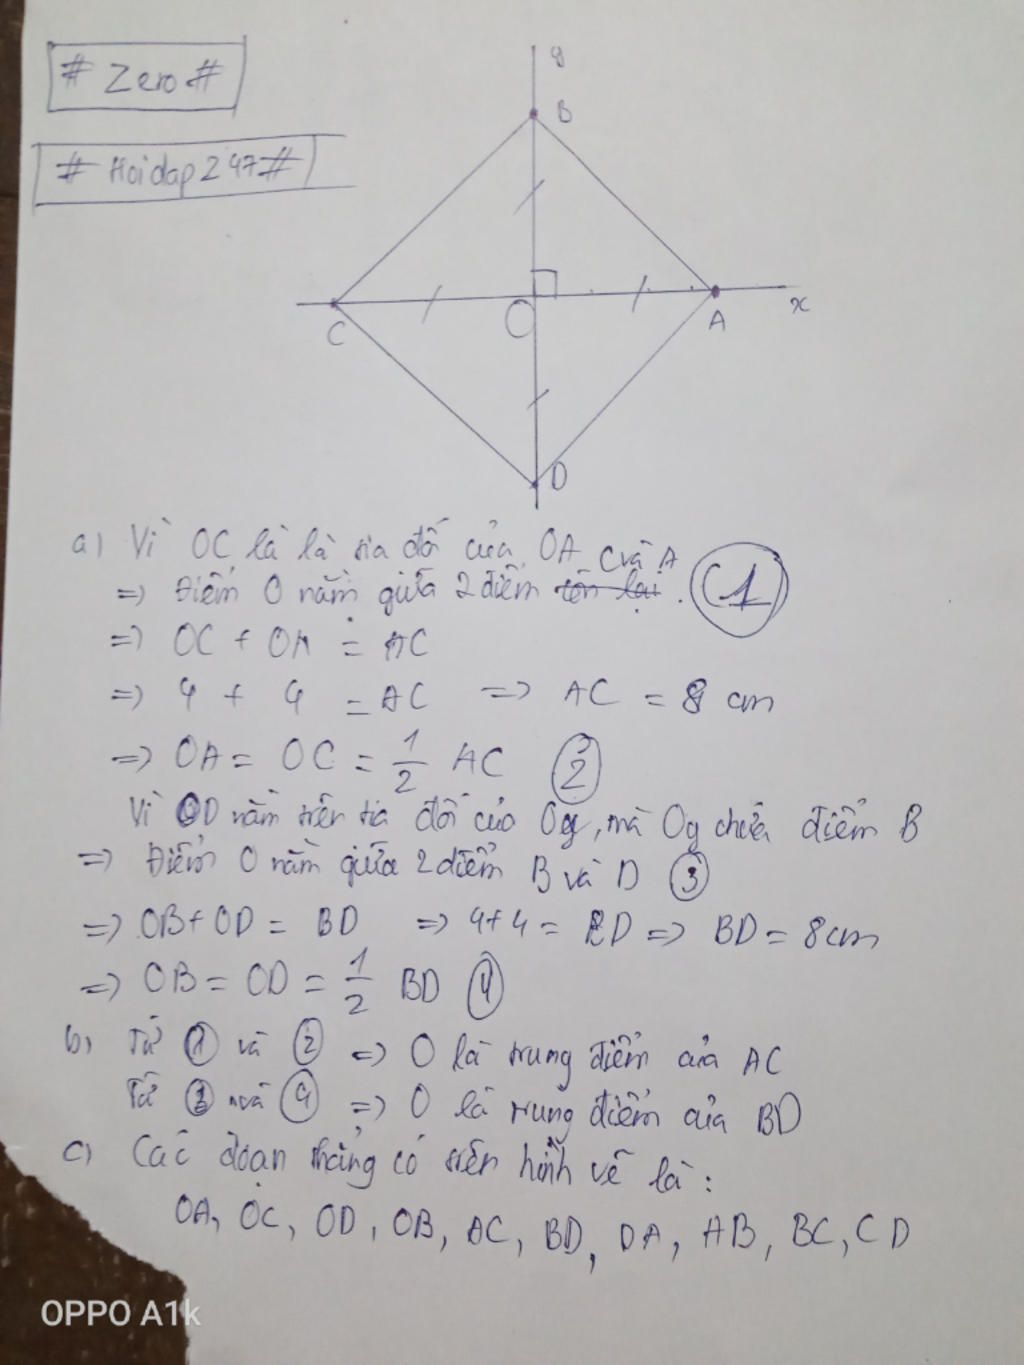 # Zero #
# Hoidap 247 #
y
B
C
O
A
x
D
a) Vì OC là là tia đối của OA
C và A
=> Điểm O nằm giữa 2 điểm tồn lại. (1)
=> OC + OA = AC
=> 4 + 4 = AC => AC = 8 cm
=> OA = OC = 1/2 AC (2)
Vì OD nằm trên tia đối của Oy, mà Oy chứa điểm B
=> Điểm O nằm giữa 2 điểm B và D (3)
=> OB + OD = BD => 4 + 4 = BD => BD = 8cm
=> OB = OD = 1/2 BD (4)
b) Từ (1) và (2) => O là trung điểm của AC
Từ (3) và (4) => O là trung điểm của BD
c) Các đoạn thẳng có trên hình vẽ là :
OA, OC, OD, OB, AC, BD, DA, AB, BC, CD
OPPO A1k